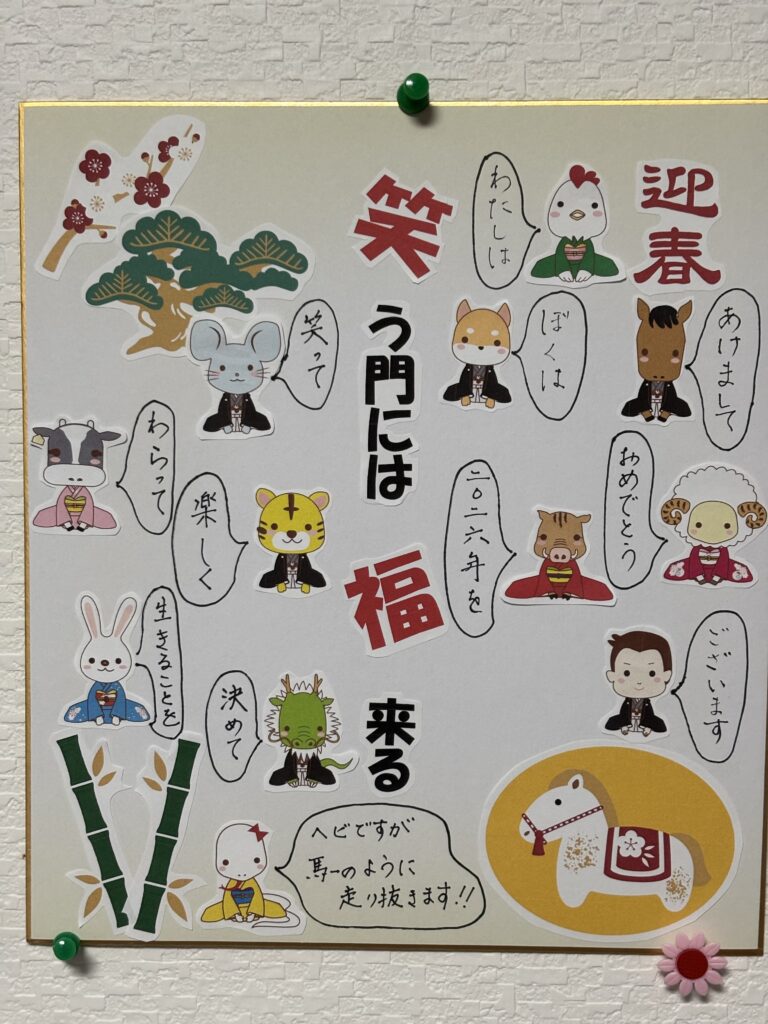 迎春
あけまして
おめでとう
ございます
わたしは
ぼくは
二〇二六年を
笑う門には福来る
笑って
わらって
楽しく
生きることを
決めて
ヘビですが
馬のように
走り抜きます!!